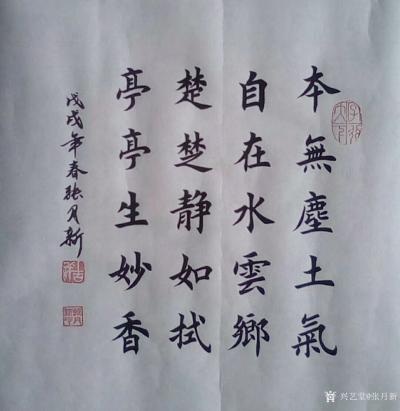 本無塵土氣
自在水雲鄉
楚楚静如拭
亭亭生妙香
戊戌年春張月新
兴艺堂@张月新